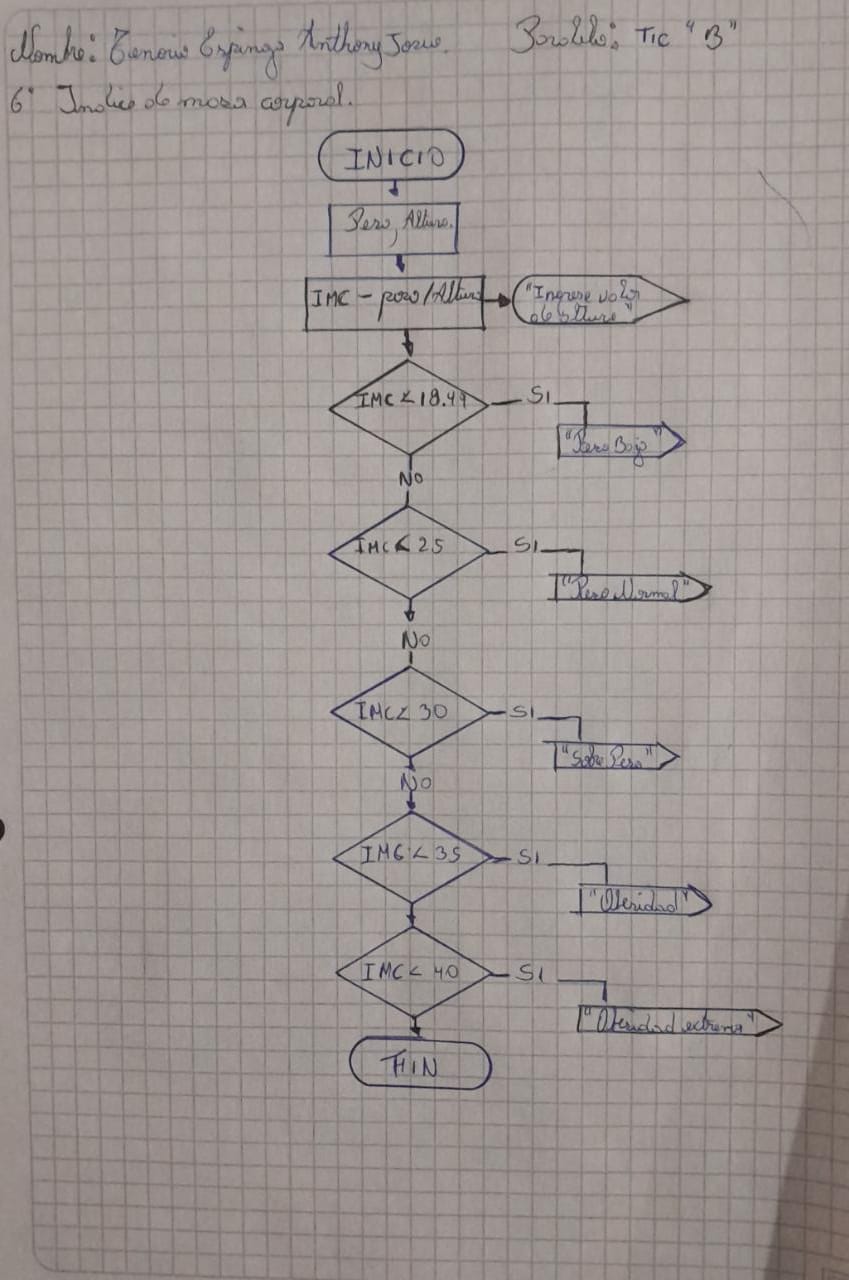 Nombre: Tenorio Espingo Anthony Josue. Paralelo: TIC "B"
6° Indice de masa corporal.
INICIO
Peso, Altura.
IMC - peso/Altura
"Ingrese valor
de altura"
IMC < 18.49
SI
"Peso Bajo"
No
IMC < 25
SI
"Peso Normal"
No
IMC < 30
SI
"Sobre Peso"
No
IMC < 35
SI
"Obesidad"
IMC < 40
SI
"Obesidad extrema"
FIN